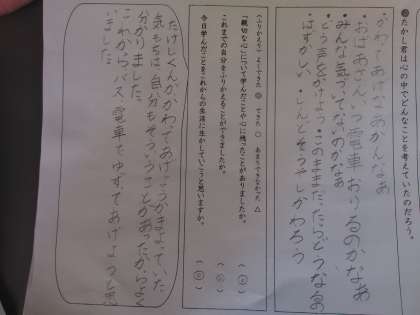 ●たかし君は心の中でどんなことを考えていたのだろう。
・かわってあげなあかんなぁ
・おばあさんいつ電車おりるのかなぁ
・みんな気づいてないのかなぁ
・どう声をかけよう・このままだったらどうなるなぁ
・はずかしい・しんどそうやしかわろう
(ふりかえり) よくできた ◎ できた ○ あまりできなかった △
「親切な心」について学んだことや心に残ったことがありましたか。 (◎)
これまでの自分をふりかえることができましたか。 (○)
今日学んだことをこれからの生活に生かしていこうと思いますか。 (◎)
たけしくんがかわってあげようかまよっていた
気もちは自分もそういうことがあったからよく
分かりました。
これからバス、電車でゆずってあげようと思
いました。